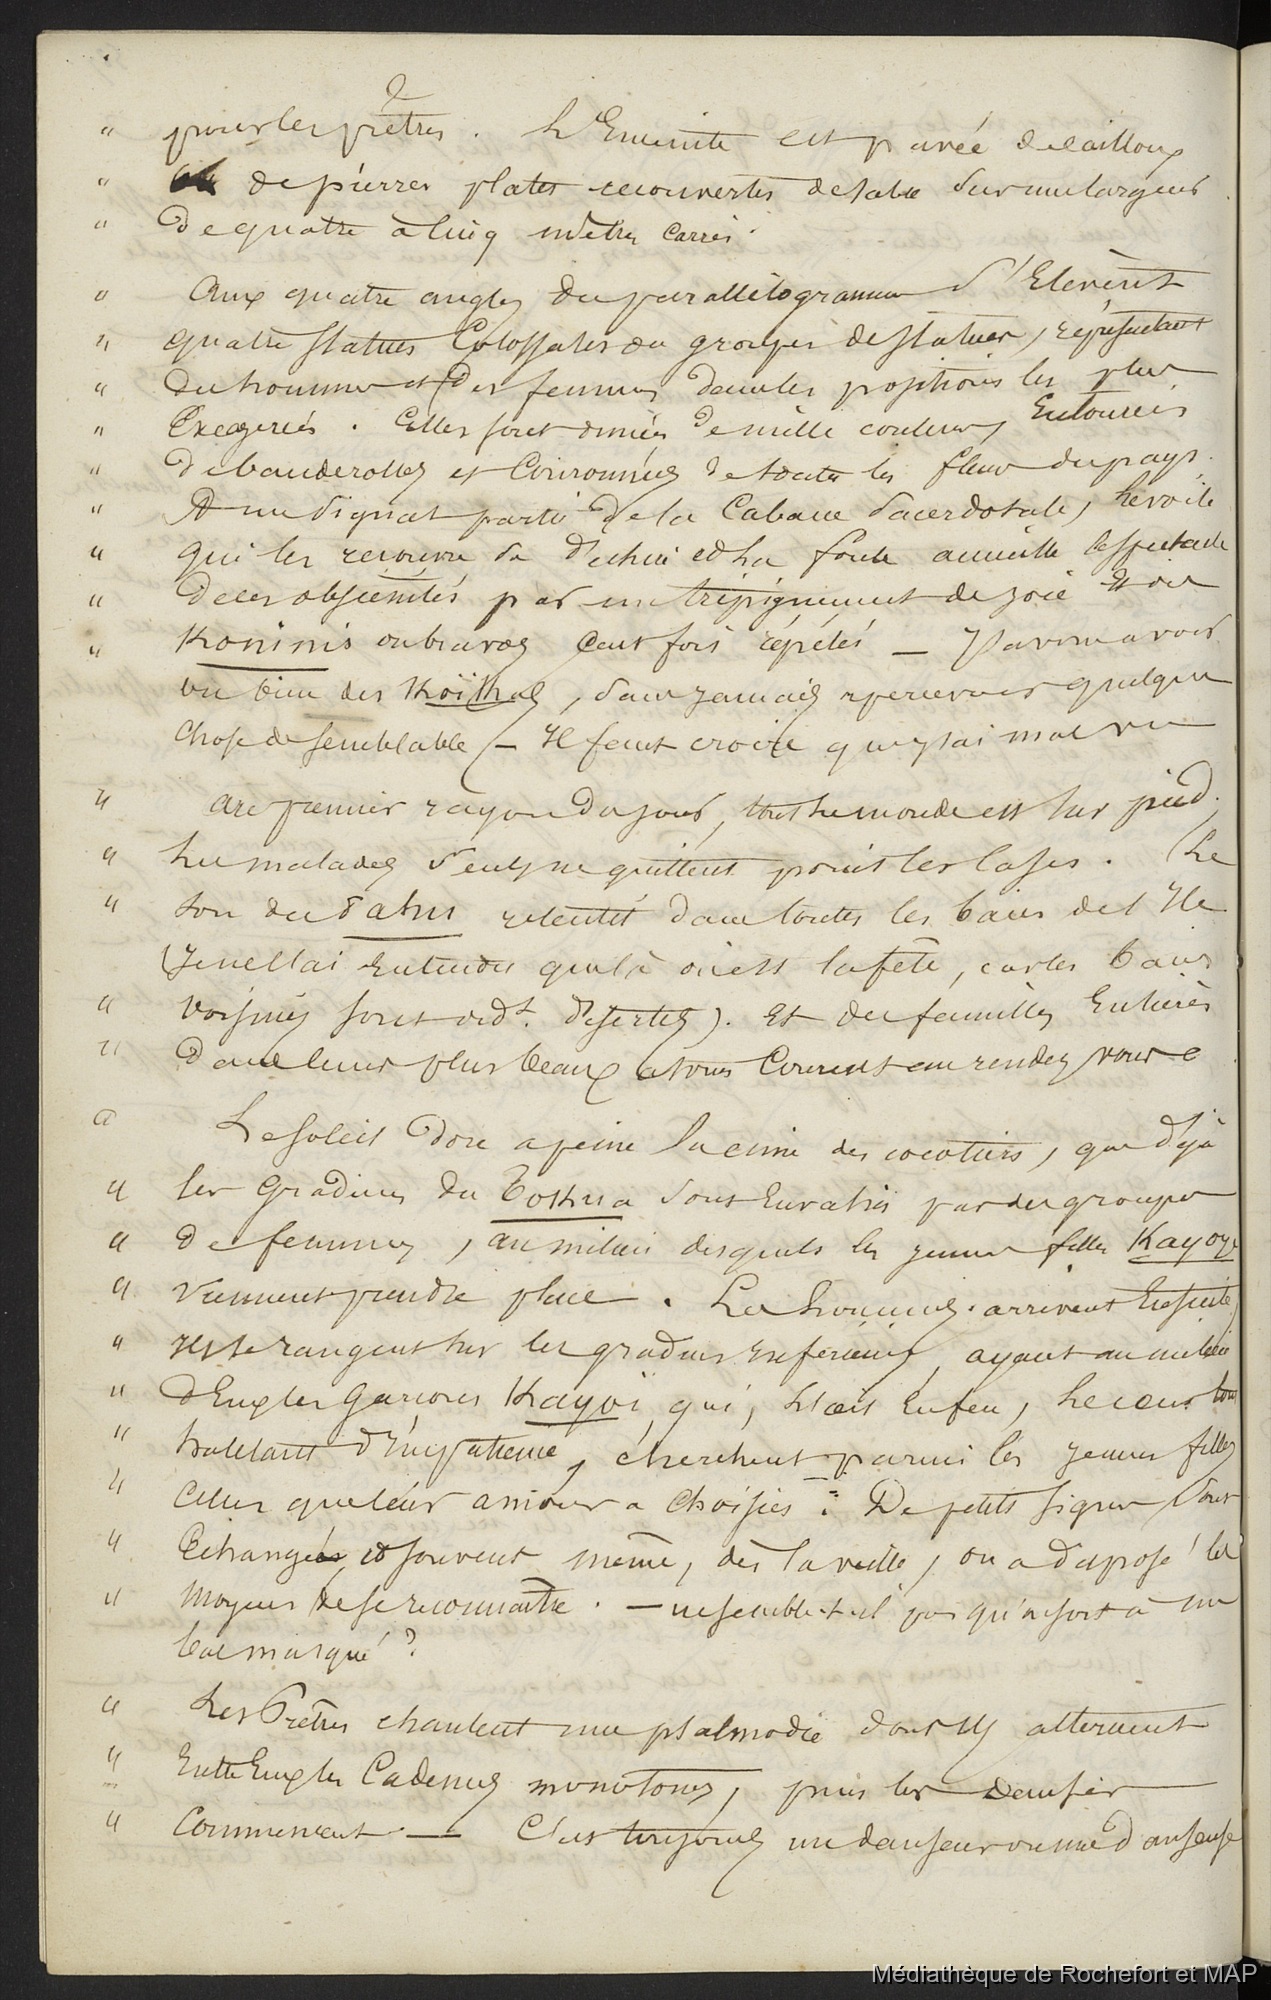 " pour les prêtres. L'Enceinte est pavée de cailloux
" de pierres plates recouvertes de sable sur une largeur
" De quatre à cinq mètres carrés.
" Aux quatre angles du parallélogramme s'Elèvent
" quatre statues Colossales ou groupes de statues, représentant
" des hommes et des femmes dans les positions les plus
" Exagérées. Elles sont ornées de mille couleurs, Entourées
" De banderolles et Couronnées de toutes les fleurs du pays.
" A un signal parti de la Cabane Sacerdotale, le voile
" qui les recouvre se déchire et la foule accueille le spectacle
" de ces obscénités par un trépignement de joie et des
" Koninis ou bravos Cent fois répétés — J'avoue avoir
vu bien des Koïkas, sans jamais apercevoir quelque
Chose de semblable — Il faut croire que j'ai mal vu
" Au premier rayon du jour, tout le monde est sur pied,
" Les malades seuls ne quittent point les cases. Le
" son du Tahu retentit dans toutes les baies de l'Ile
(Je ne l'ai entendu que là où est la fête, car les baies
" voisines sont ord.t désertes). Et des familles Entières
" Dans leurs plus beaux atours Courent au rendez vous
" Le soleil dore a peine la cime des cocotiers, que déjà
" les Gradins du Tohua sont Envahis par des groupes
" De femmes, au milieu desquels les jeunes filles Kayoye
" viennent prendre place. Les hommes arrivent Ensuite,
" Ils se rangent sur les gradins inférieurs, ayant au milieu
" D'Eux les Garçons Kayoï, qui, l'œil En feu, le cœur tout
" haletant d'impatience, cherchent parmi les jeunes filles
" Celles que leur amour a choisies. De petits signes sont
" Echangés, et souvent même, dès la veille, on a disposé les
" Moyens de se reconnaître. — ne semble-t-il pas qu'on soit à un
bal masqué ?
" Les Prêtres chantent une psalmodie dont ils alternent
" Entre Eux les Cadences monotones, puis les danses
" Commencent — C'est toujours un danseur ou une danseuse
Médiathèque de Rochefort et MAP